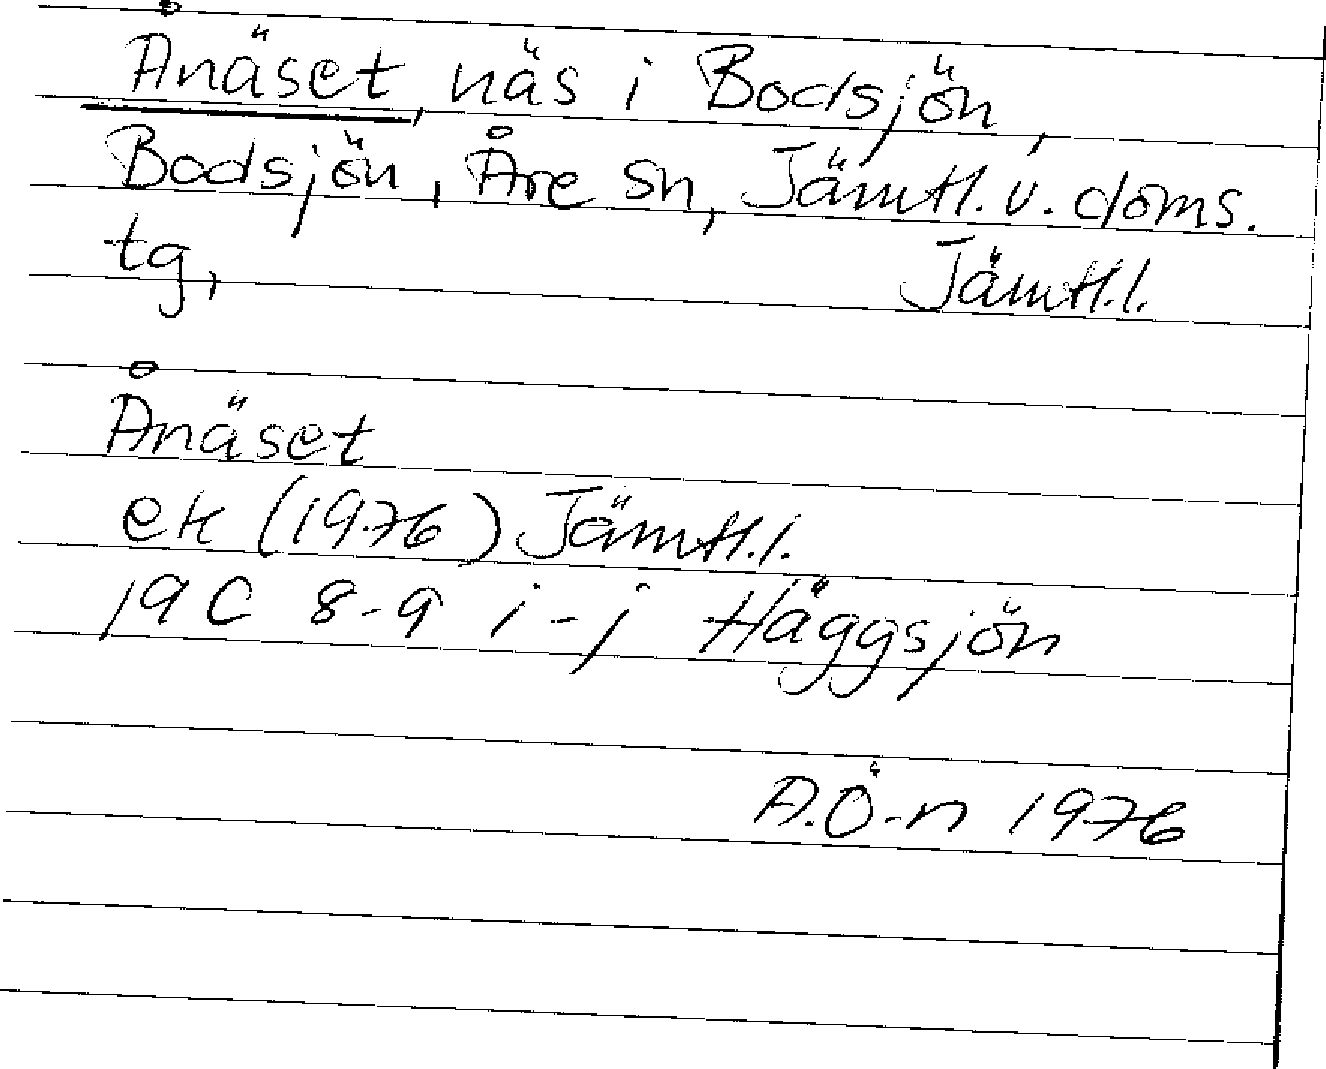 Ånäset, näs i Bodsjön,
Bodsjön, Åre sn, Jämtl. v. doms.
tg, Jämtl. l.
Ånäset
ek (1976) Jämtl. l.
19C 8-9 i-j Häggsjön
A.Ö-n 1976